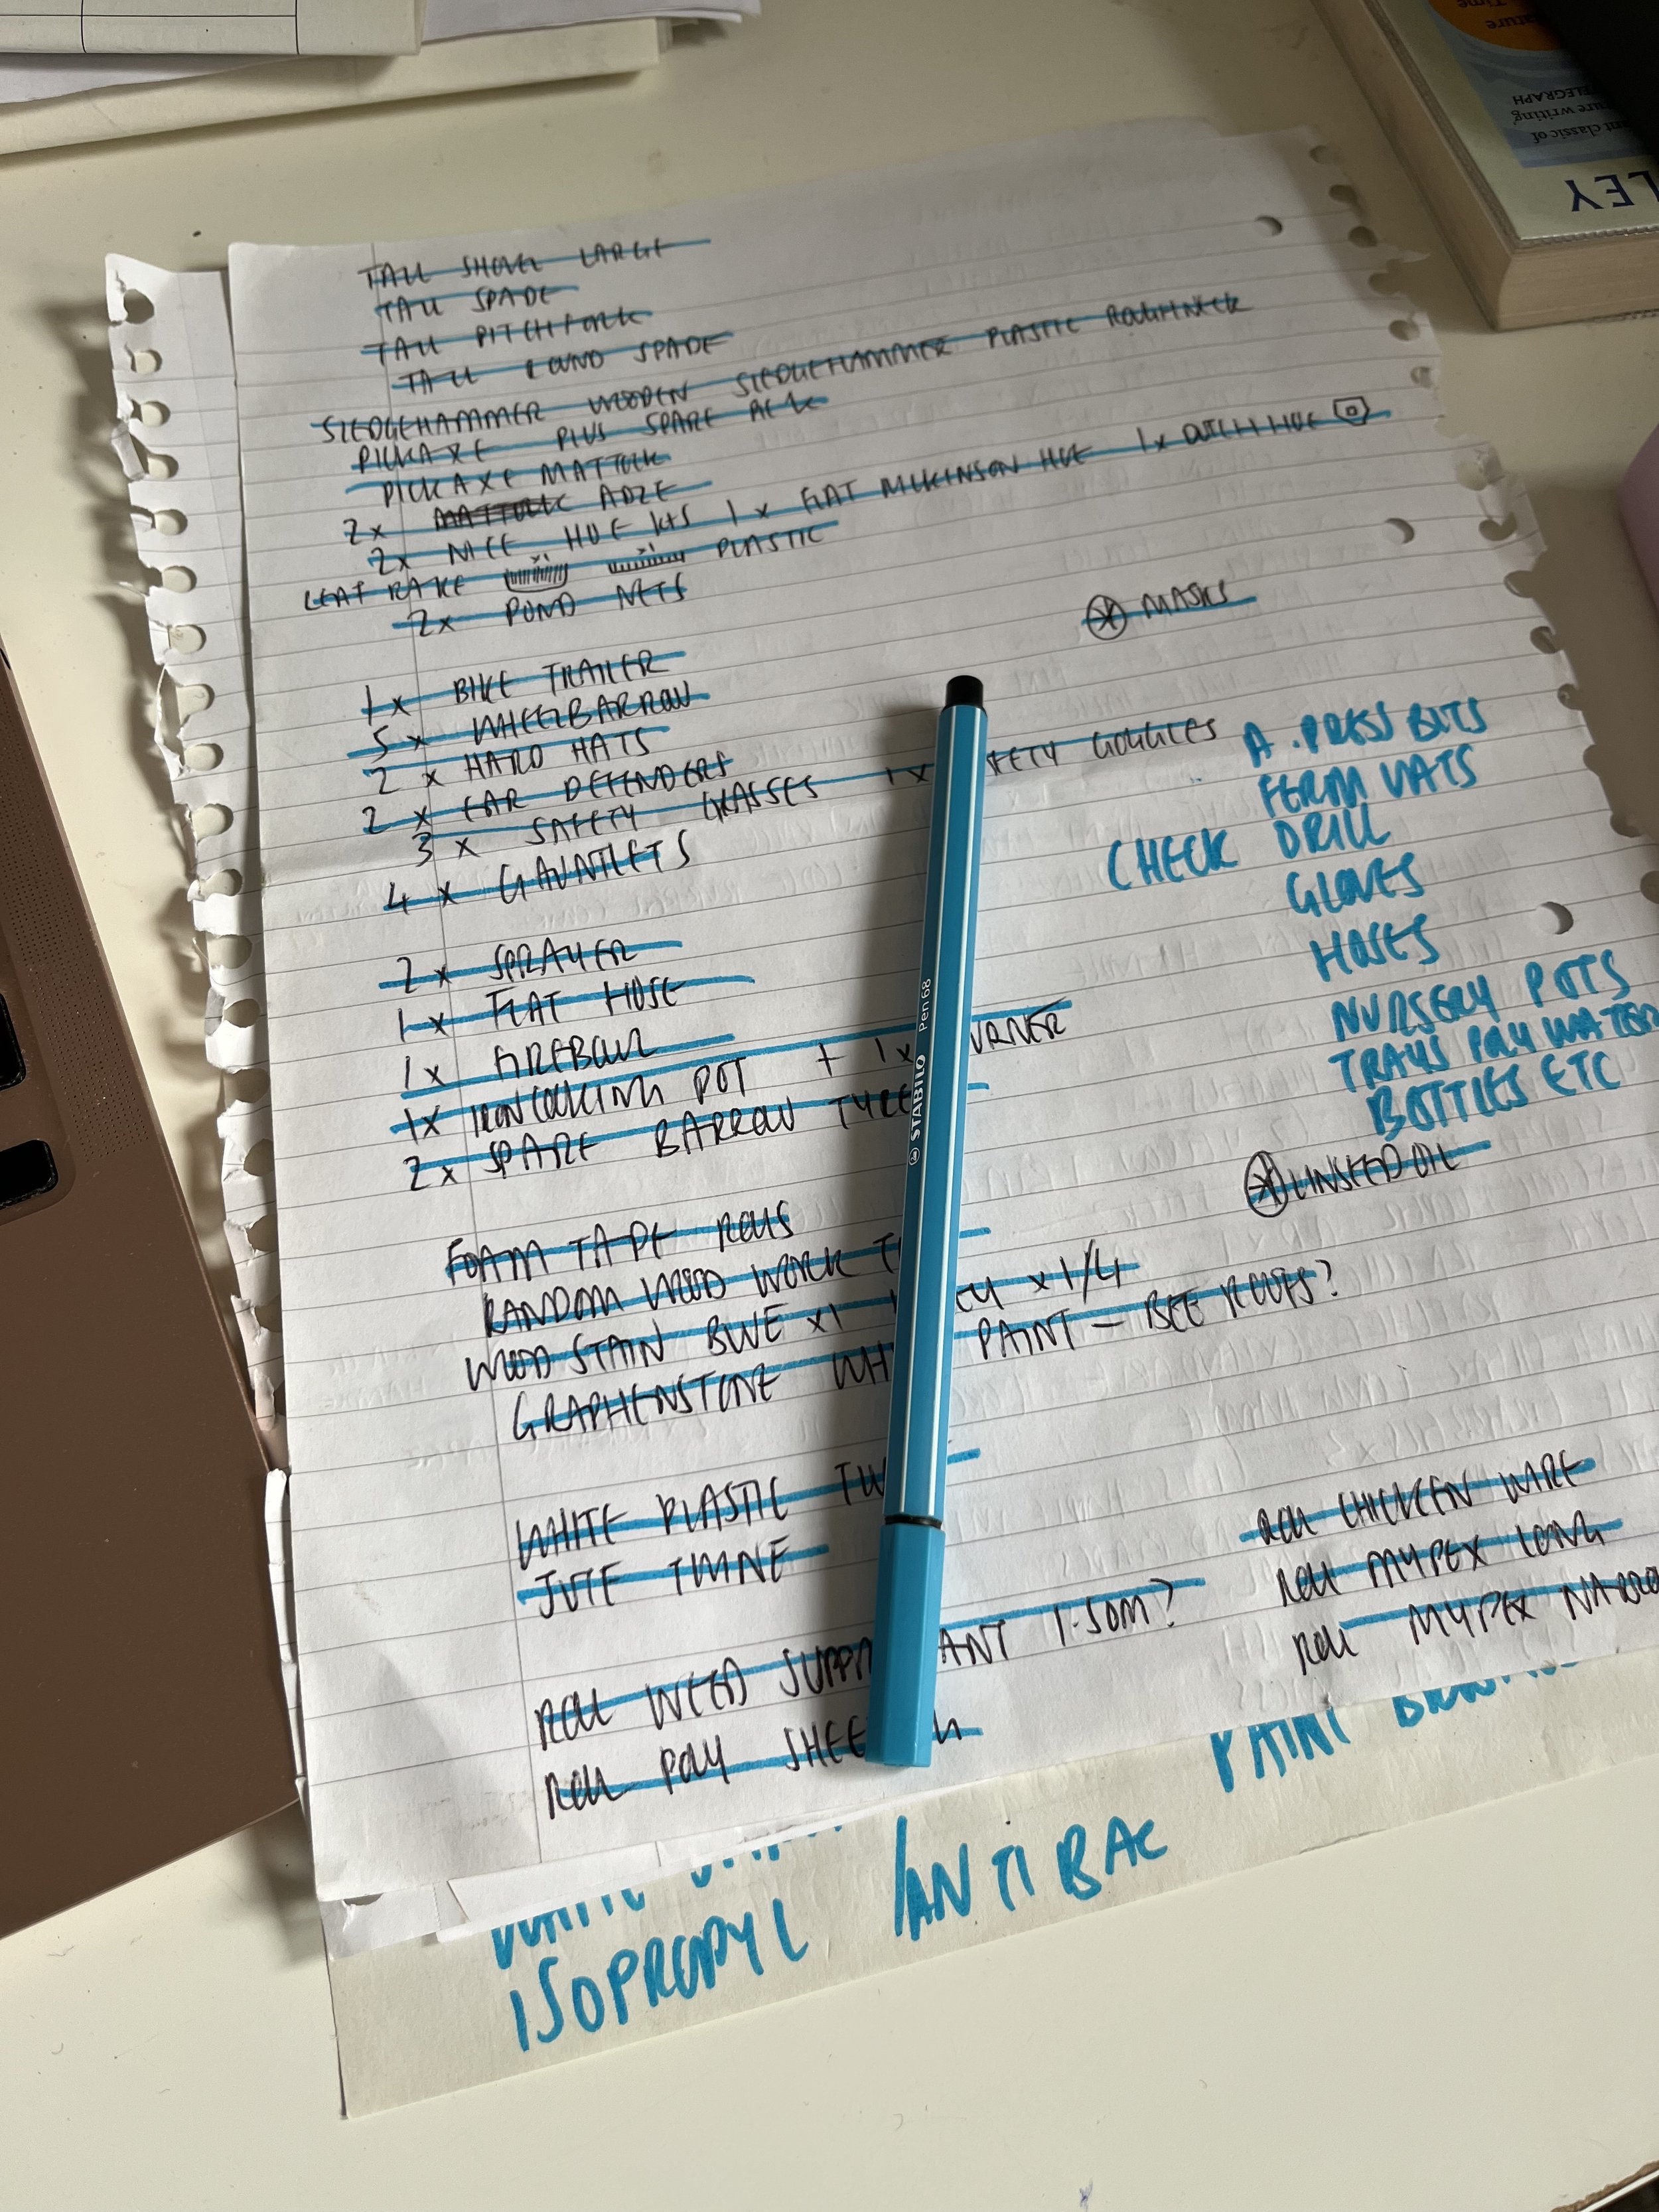 TALL SHOVEL LARGE
TALL SPADE
TALL PITCHFORK
TALL ROUND SPADE
SLEDGEHAMMER WOODEN SLEDGEHAMMER PLASTIC ROUGHNECK
PICKAXE PLUS SPARE
PICKAXE MATTOCK
2x MATTOCK ADZE
2x NICE HOE 1x FLAT WILKINSON HOE 1x DUTCH HOE
LEAF RAKE PLASTIC
2x POND NETS
MASKS
1x BIKE TRAILER
5x WHEELBARROW
2 x HARD HATS
2 x EAR DEFENDERS
3 x SAFETY GLASSES 1x FETY GOGGLES
4 x GAUNTLETS
A. PRESS BITS
FERM VATS
CHECK DRILL
GLOVES
HOSES
NURSERY POTS
TRAYS POLY WATER
BOTTLES ETC
2x SPRAYER
1x FLAT HOSE
1x FIREBOWL
1x IRON COOKING POT + 1x URNER
2x SPARE BARROW TYRE
LINSEED OIL
FOAM TAPE ROLLS
RANDOM WOOD WORK T
WOOD STAIN BLUE x1 EY x 1/4
GRAPHENSTONE WHI PAINT - BEE ROOFS?
WHITE PLASTIC TW
JUTE TWINE
ROLL CHICKEN WIRE
ROLL MYPEX LONG
ROLL MYPEX NARRO
ROLL WEED SUPPR ANT 1.50M?
ROLL POLY SHEE G
PAINT
ISOPROPYL /ANTIBAC
STABILO Pen 68
LEY
nt classic of
ture writing
ELEGRAPH
ature
Time